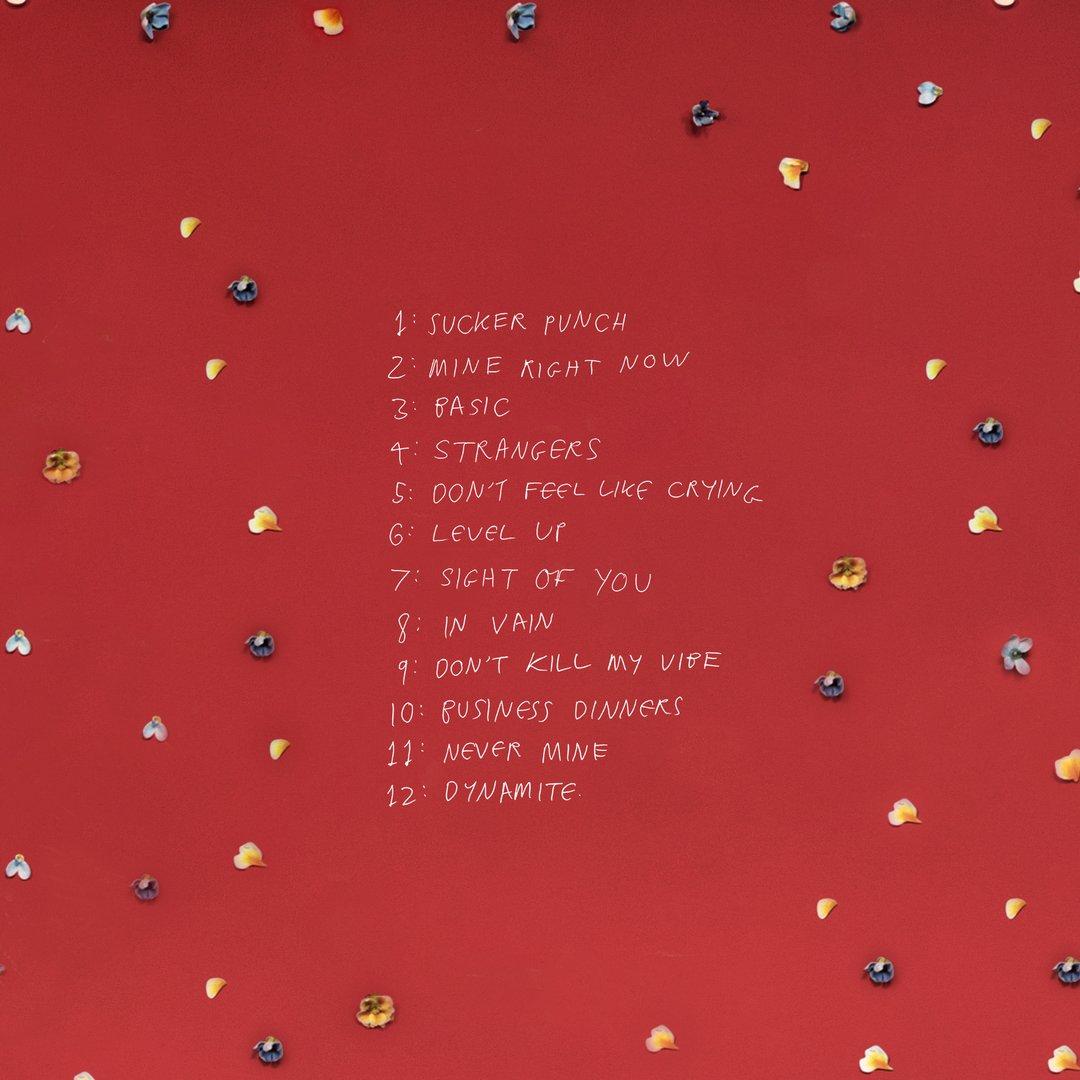 1: SUCKER PUNCH
2: MINE RIGHT NOW
3: BASIC
4: STRANGERS
5: DON'T FEEL LIKE CRYING
6: LEVEL UP
7: SIGHT OF YOU
8: IN VAIN
9: DON'T KILL MY VIBE
10: BUSINESS DINNERS
11: NEVER MINE
12: DYNAMITE.